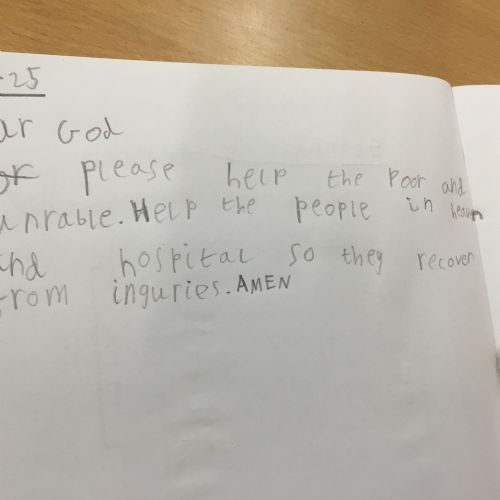 -25
ar God
or please help the poor and
unrable. Help the people in heaven
and hospital so they recover
from inguries. AMEN